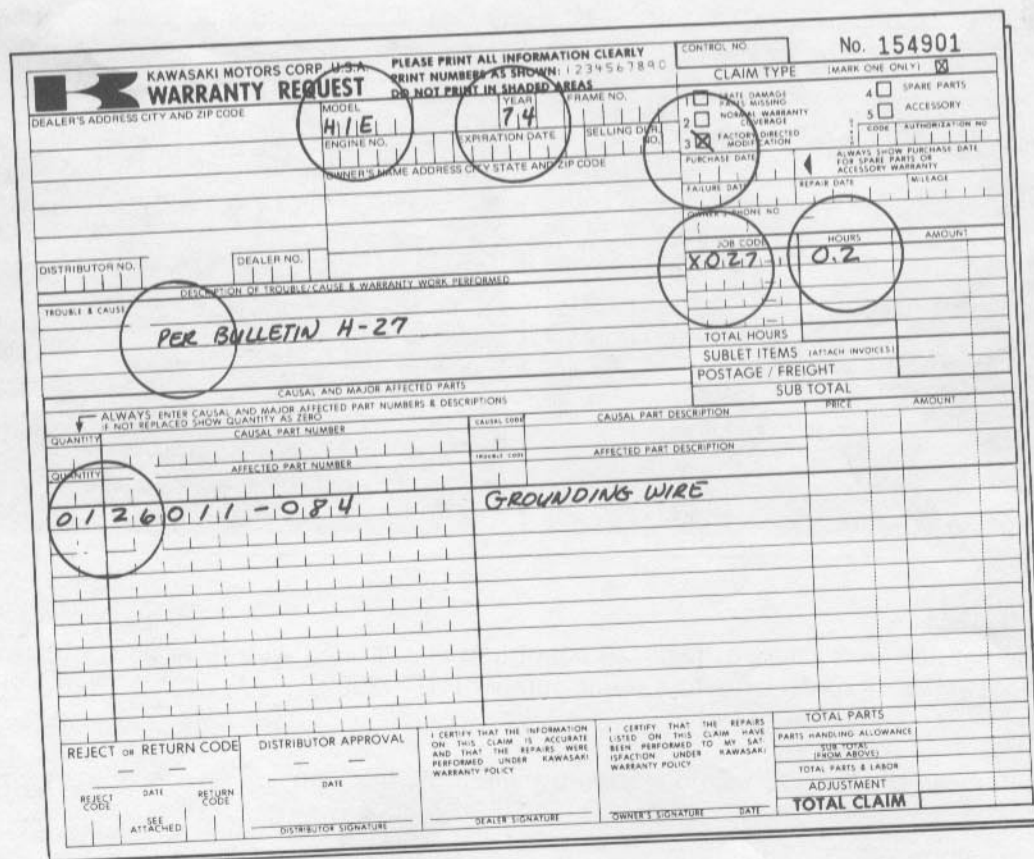 KAWASAKI MOTORS CORP. U.S.A.
WARRANTY REQUEST
PLEASE PRINT ALL INFORMATION CLEARLY
PRINT NUMBERS AS SHOWN: 1234567890
DO NOT PRINT IN SHADED AREAS
CONTROL NO.
No. 154901
CLAIM TYPE (MARK ONE ONLY) ☒
1 CRATE DAMAGE PARTS MISSING
2 NORMAL WARRANTY COVERAGE
3 ☒ FACTORY DIRECTED MODIFICATION
4 SPARE PARTS
5 ACCESSORY
CODE AUTHORIZATION NO
DEALER'S ADDRESS CITY AND ZIP CODE
MODEL
H1E
YEAR
74
FRAME NO.
ENGINE NO.
EXPIRATION DATE
SELLING DLR. NO.
OWNER'S NAME ADDRESS CITY STATE AND ZIP CODE
PURCHASE DATE
ALWAYS SHOW PURCHASE DATE
FOR SPARE PARTS OR
ACCESSORY WARRANTY
FAILURE DATE
REPAIR DATE
MILEAGE
OWNER'S PHONE NO
DISTRIBUTOR NO.
DEALER NO.
JOB CODE
HOURS
AMOUNT
X027
0.2
DESCRIPTION OF TROUBLE/CAUSE & WARRANTY WORK PERFORMED
TROUBLE & CAUSE
PER BULLETIN H-27
TOTAL HOURS
SUBLET ITEMS (ATTACH INVOICES)
POSTAGE / FREIGHT
SUB TOTAL
CAUSAL AND MAJOR AFFECTED PARTS
ALWAYS ENTER CAUSAL AND MAJOR AFFECTED PART NUMBERS & DESCRIPTIONS
IF NOT REPLACED SHOW QUANTITY AS ZERO
QUANTITY
CAUSAL PART NUMBER
CAUSAL CODE
CAUSAL PART DESCRIPTION
PRICE
AMOUNT
QUANTITY
AFFECTED PART NUMBER
TROUBLE CODE
AFFECTED PART DESCRIPTION
01 26011-084 GROUNDING WIRE
REJECT OR RETURN CODE
DATE
REJECT CODE
SEE ATTACHED
RETURN CODE
DISTRIBUTOR APPROVAL
DATE
DISTRIBUTOR SIGNATURE
I CERTIFY THAT THE INFORMATION
ON THIS CLAIM IS ACCURATE
AND THAT THE REPAIRS WERE
PERFORMED UNDER KAWASAKI
WARRANTY POLICY
DEALER SIGNATURE
I CERTIFY THAT THE REPAIRS
LISTED ON THIS CLAIM HAVE
BEEN PERFORMED TO MY SAT
ISFACTION UNDER KAWASAKI
WARRANTY POLICY
OWNER'S SIGNATURE DATE
TOTAL PARTS
PARTS HANDLING ALLOWANCE
SUB TOTAL
(FROM ABOVE)
TOTAL PARTS & LABOR
ADJUSTMENT
TOTAL CLAIM